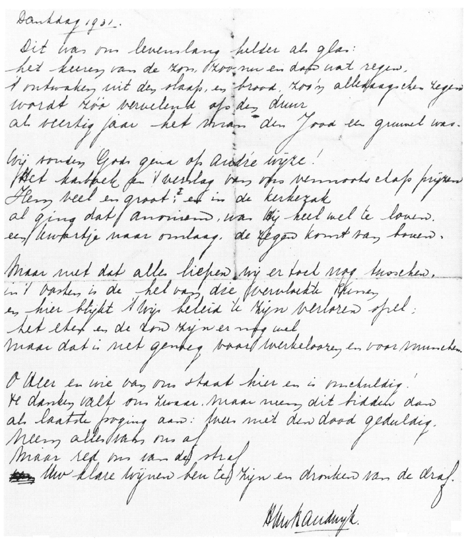 Dankdag 1931.
Dit was ons levenslang helder als glas:
het keeren van de zon, zoo nu en dan wat regen,
't ontwaken uit den slaap, en brood, zoo'n alledaagschen zegen
wordt zóó vervelend op den duur
als veertig jaar het man den Jood een gruwel was.
Wij vonden Gods gena op andre wijze!
Het kasboek en 't verslag van ons vennootschap prijzen
Hem veel en groot; en in de kerkezak
al ging dat anoniem, was Hij heel wel te loven.
een kwartje naar omlaag, de zegen komt van boven.
Maar met dat alles liepen wij er toch nog tusschen.
in 't vasten is de hel van die vervloekte
en hier blijkt 't wijs beleid te zijn verloren spel;
het eten en de zon zijn er nog wel
maar dat is net genoeg voor werkeloozen en voor musschen
O Heer en wie van ons staat hier en is onschuldig!
He danken valt ons zwaar, maar neem dit bidden dan
als laatste poging aan: wees met den dood geduldig.
Neem alles van ons af
Maar red ons van de straf
Uw klare wijnen beu te zijn en dronken van de draf.
H van Randwijk.